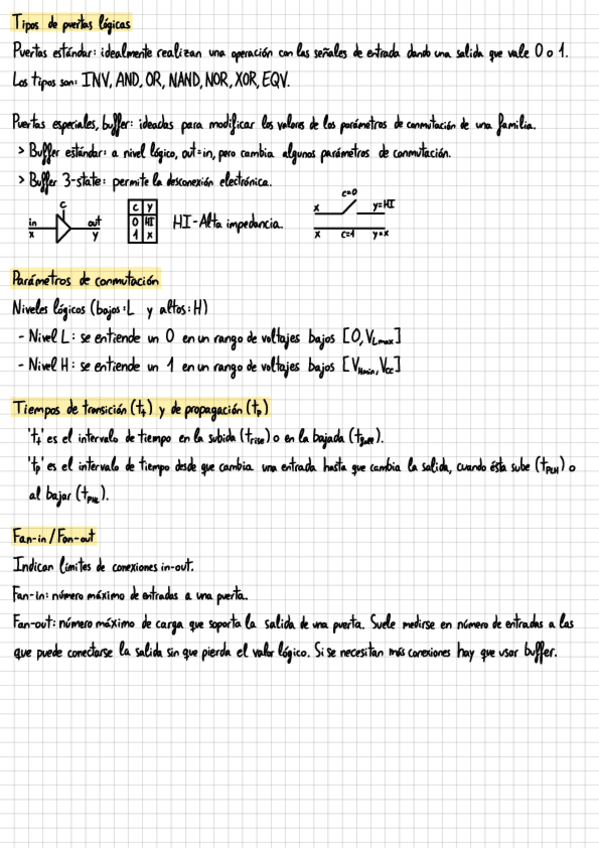 Tipos de puertas lógicas
Puertas estándar: idealmente realizan una operación con las señales de entrada dando una salida que vale 0 o 1.
Los tipos son: INV, AND, OR, NAND, NOR, XOR, EQV.
Puertas especiales, buffer: ideadas para modificar los valores de los parámetros de conmutación de una familia.
> Buffer estándar: a nivel lógico, out=in, pero cambia algunos parámetros de conmutación.
> Buffer 3-state: permite la desconexión electrónica.
in x c out y
c y
0 HI
1 x
HI-Alta impedancia.
x c=0 y=HI
x c=1 y=x
Parámetros de conmutación
Niveles lógicos (bajos:L y altos:H)
- Nivel L: se entiende un 0 en un rango de voltajes bajos [0, VLmax]
- Nivel H: se entiende un 1 en un rango de voltajes bajos [VHmin, Vcc]
Tiempos de transición (tt) y de propagación (tp)
'tt' es el intervalo de tiempo en la subida (trise) o en la bajada (tfall).
'tp' es el intervalo de tiempo desde que cambia una entrada hasta que cambia la salida, cuando ésta sube (tPLH) o
al bajar (tPHL).
Fan-in/Fan-out
Indican límites de conexiones in-out.
Fan-in: número máximo de entradas a una puerta.
Fan-out: número máximo de carga que soporta la salida de una puerta. Suele medirse en número de entradas a las
que puede conectarse la salida sin que pierda el valor lógico. Si se necesitan más conexiones hay que usar buffer.